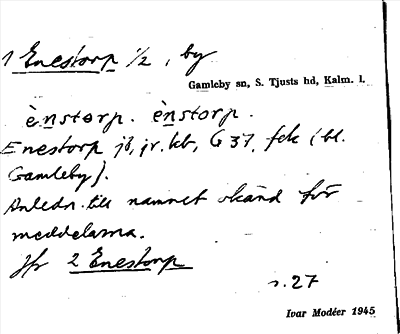 1 Enestorp 1/2, by
Gamleby sn, S. Tjusts hd, Kalm. l.
ènstorp. ènstorp.
Enestorp jb, jr, kb, G 37, fck (bl.
Gamleby).
Anledn. till namnet okänd för
meddelarna.
Jfr 2 Enestorp
s. 27
Ivar Modéer 1945